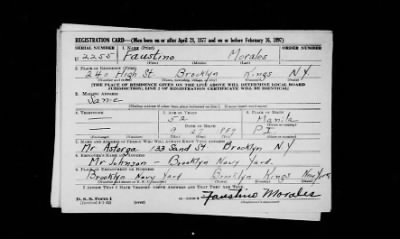 REGISTRATION CARD—(Men born on or after April 28, 1877 and on or before February 16, 1897)
SERIAL NUMBER 1. NAME (Print)
U 2255 Faustino Morales
(First) (Middle) (Last)
2. PLACE OF RESIDENCE (Print)
240 High St. Brooklyn Kings N.Y.
[THE PLACE OF RESIDENCE GIVEN ON THE LINE ABOVE WILL DETERMINE LOCAL BOARD
JURISDICTION; LINE 2 OF REGISTRATION CERTIFICATE WILL BE IDENTICAL]
3. MAILING ADDRESS
Same
4. TELEPHONE 5. AGE IN YEARS 6. PLACE OF BIRTH
Manila
DATE OF BIRTH
9 27 P.I.
7. NAME AND ADDRESS OF PERSON WHO WILL ALWAYS KNOW YOUR ADDRESS
Mr Astorga 133 Sand St Brooklyn N.Y
8. EMPLOYER'S NAME AND ADDRESS
Mr Johnson - Brooklyn Navy Yard.
9. PLACE OF EMPLOYMENT OR BUSINESS
Brooklyn Navy Yard Brooklyn Kings New York
I AFFIRM THAT I HAVE VERIFIED ABOVE ANSWERS AND THAT THEY ARE TRUE.
D. S. S. Form 1
Faustino Morales